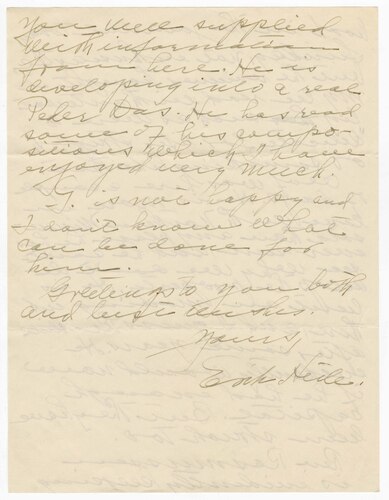 You well supplied
with information
from here. He is
developing into a real
Peder Das. He has read
some of his compo-
sitions which I have
enjoyed very much.
T. is not happy and
I don't know what
can be done for
him.
Greetings to you both
and best wishes.
Yours,
Erik